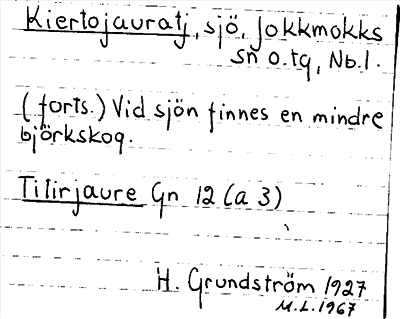 Kiertojauratj, sjö, Jokkmokks
sn o. tg, Nb.l.
(forts.) Vid sjön finnes en mindre
björkskog.
Titirjaure Gn 12 (a 3)
H. Grundström 1927
M.L. 1967